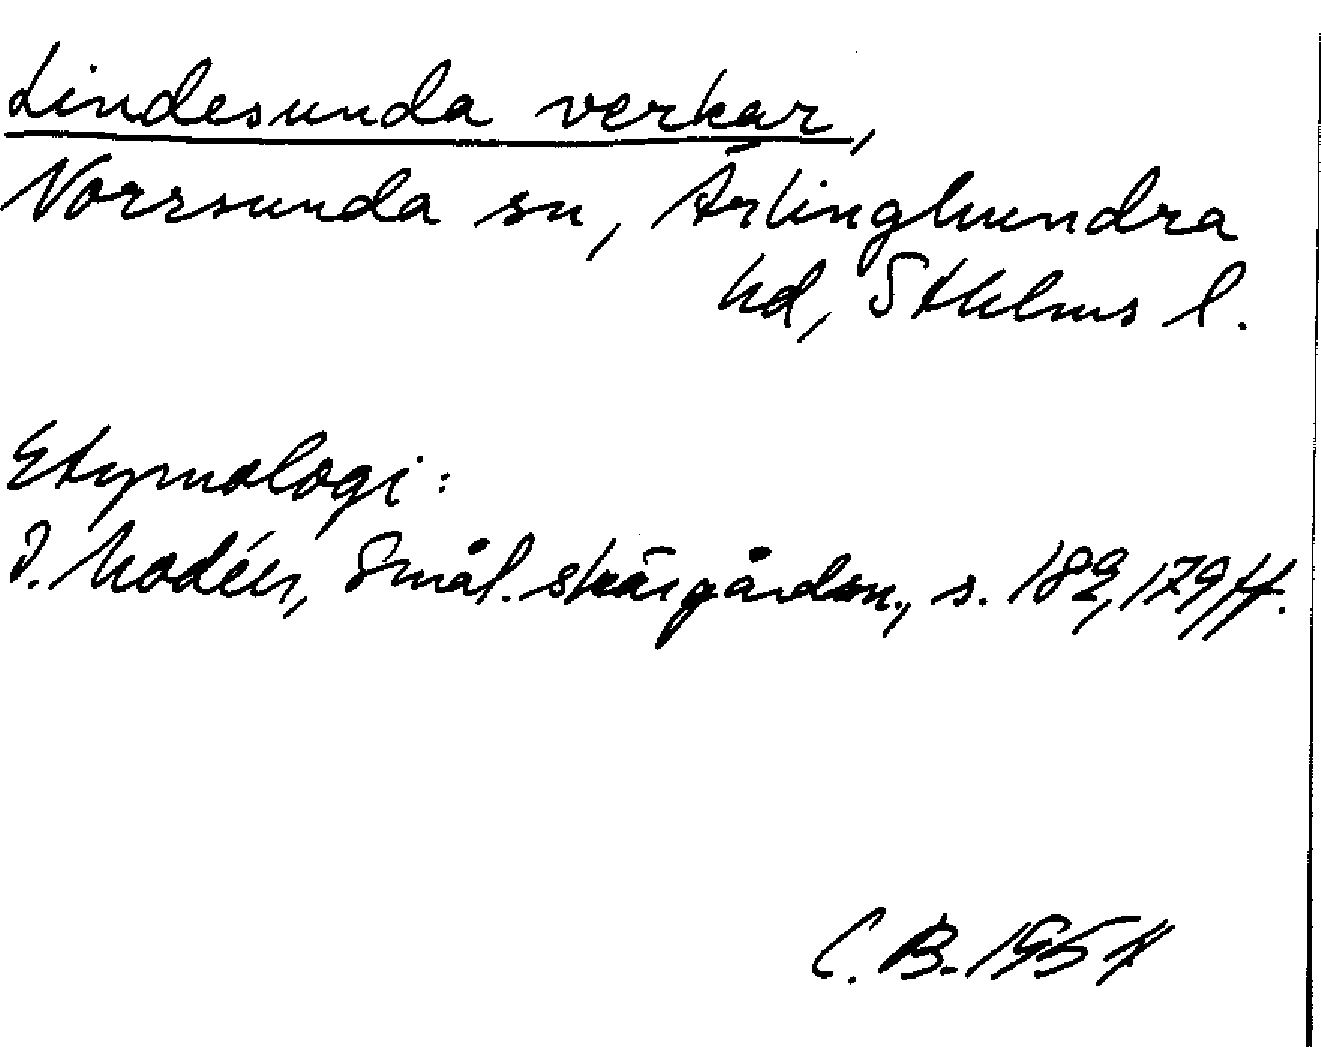 Lindesunda verkar,
Norrsunda sn, Ärlinghundra
hd, Sthlms l.
Etymologi:
I. Modéer, Smål. skärgården, s. 182, 179 ff.
C. B. 1957